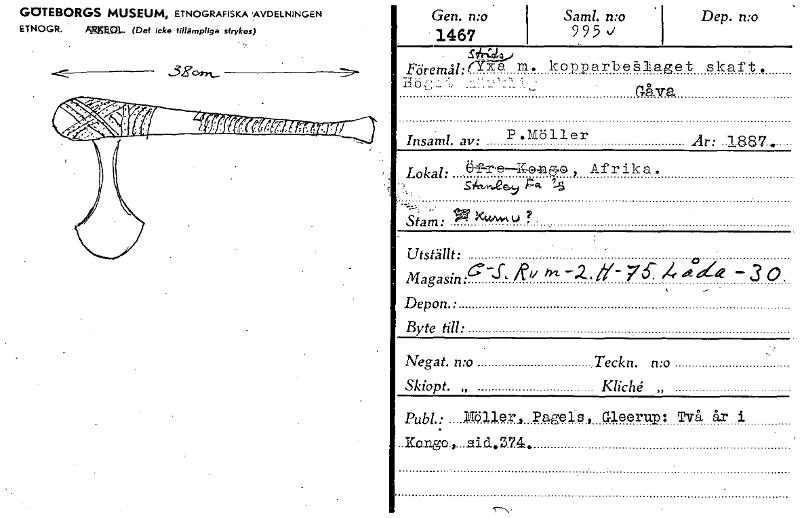 GÖTEBORGS MUSEUM, ETNOGRAFISKA AVDELNINGEN
ETNOGR. ARKEOL. (Det icke tillämpliga strykes)
38cm
Gen. n:o Saml. n:o Dep. n:o
1467 995
Strids
Föremål: Yxa m. kopparbeslaget skaft.
Gåva
Insaml. av: P.Möller År: 1887.
Lokal: Öfre Kongo, Afrika.
Stanley Fa
Stam: Kumu?
Utställt:
Magasin: G-S. Rum-2. H-75. Låda-30
Depon.:
Byte till:
Negat. n:o Teckn. n:o
Skiopt. „ Kliché „
Publ.: Möller, Pagels, Gleerup: Två år i
Kongo, sid.374.